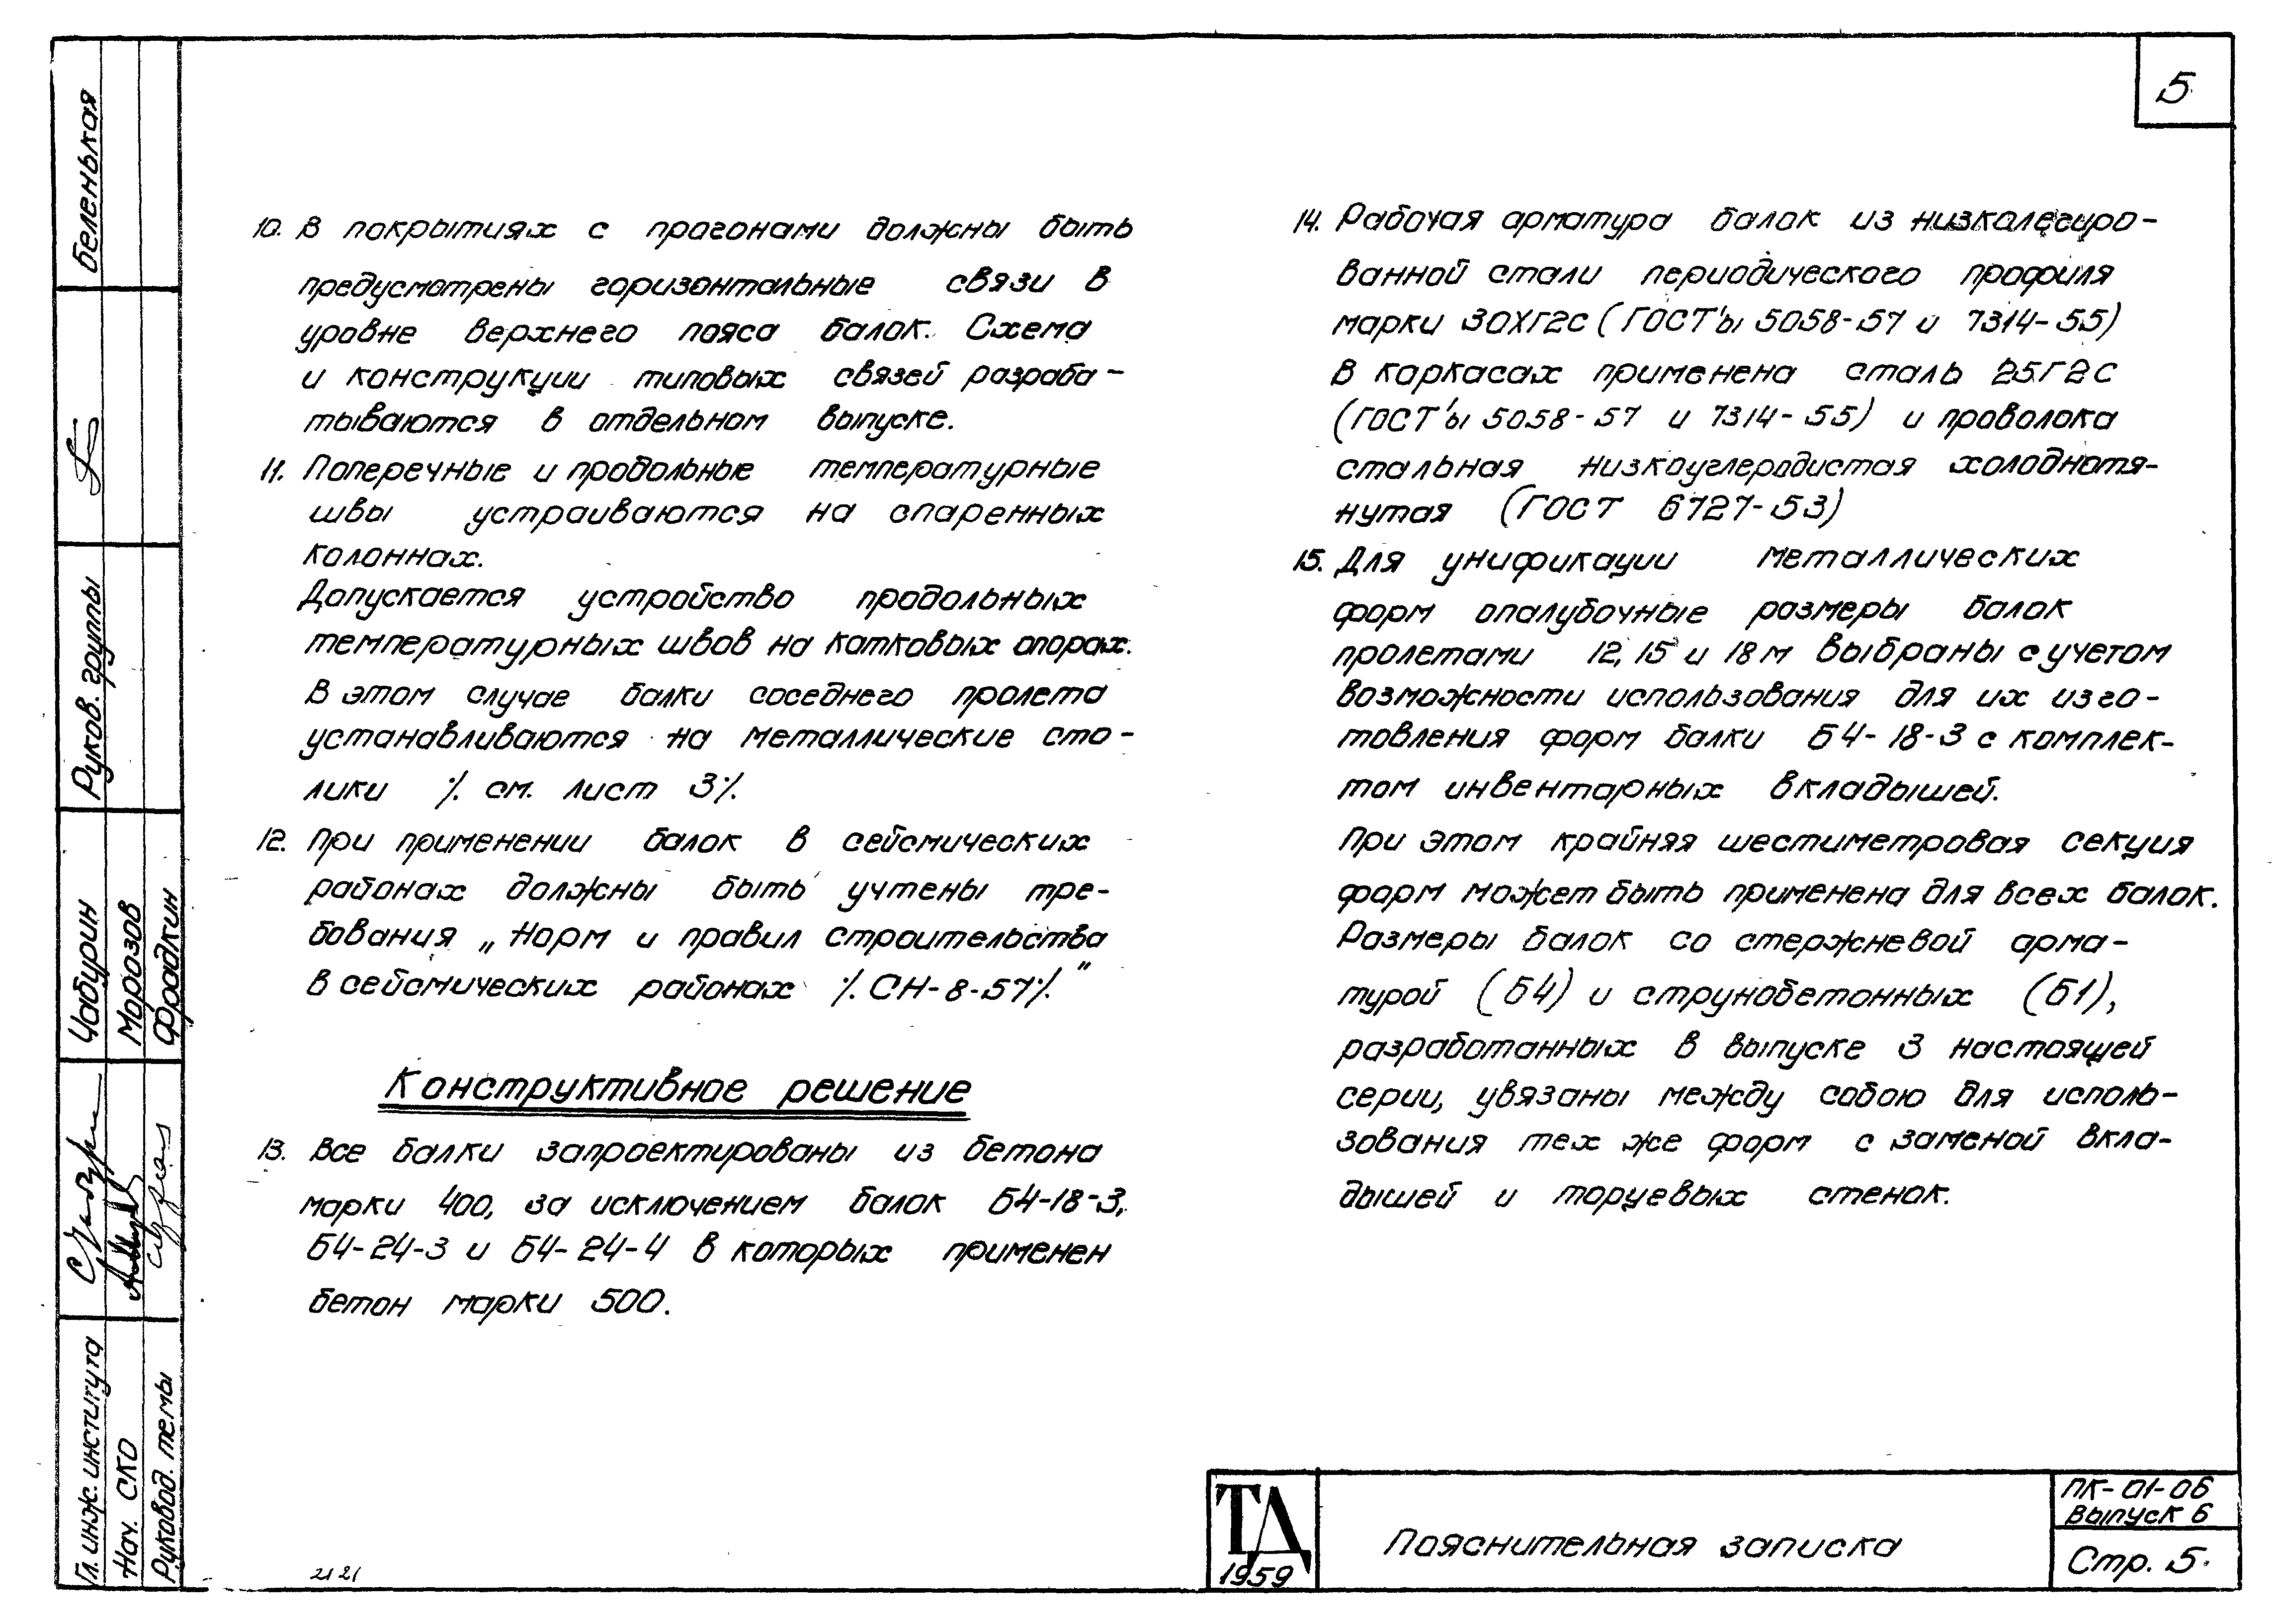 5
10. В покрытиях с прогонами должны быть
предусмотрены горизонтальные связи в
уровне верхнего пояса балок. Схема
и конструкции типовых связей разраба-
тываются в отдельном выпуске.
11. Поперечные и продольные температурные
швы устраиваются на спаренных
колоннах.
Допускается устройство продольных
температурных швов на катковых опорах.
В этом случае балки соседнего пролета
устанавливаются на металлические сто-
лики /. см. лист 3 ./.
12. При применении балок в сейсмических
районах должны быть учтены тре-
бования „Норм и правил строительства
в сейсмических районах /. СН-8-57 ./."
Конструктивное решение
13. Все балки запроектированы из бетона
марки 400, за исключением балок Б4-18-3,
Б4-24-3 и Б4-24-4 в которых применен
бетон марки 500.
14. Рабочая арматура балок из низколегиро-
ванной стали периодического профиля
марки 30ХГ2С (ГОСТ'ы 5058-57 и 7314-55)
В каркасах применена сталь 25Г2С
(ГОСТ'ы 5058-57 и 7314-55) и проволока
стальная низкоуглеродистая холоднотя-
нутая (ГОСТ 6727-53)
15. Для унификации металлических
форм опалубочные размеры балок
пролетами 12, 15 и 18 м выбраны с учетом
возможности использования для их изго-
товления форм балки Б4-18-3 с комплек-
том инвентарных вкладышей.
При этом крайняя шестиметровая секция
форм может быть применена для всех балок.
Размеры балок со стержневой арма-
турой (Б4) и струнобетонных (Б1),
разработанных в выпуске 3 настоящей
серии, увязаны между собою для исполь-
зования тех же форм с заменой вкла-
дышей и торцевых стенок.
Гл. инж. института Чабурин Руков. группы Беленькая
Нач. СКО Морозов
Руковод. темы Фрадкин
2121
ТД
1959
Пояснительная записка
ПК-01-06
Выпуск 6
Стр. 5